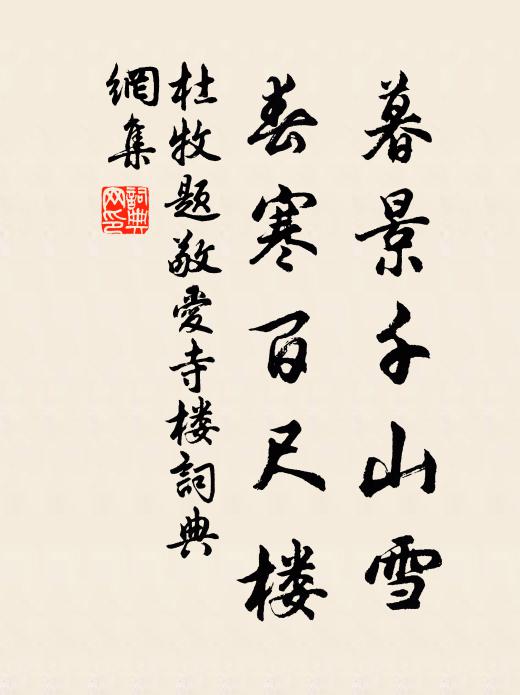 暮景千山雪
春寒百尺楼
杜牧题敬爱寺楼詞典
網集
詞典网印